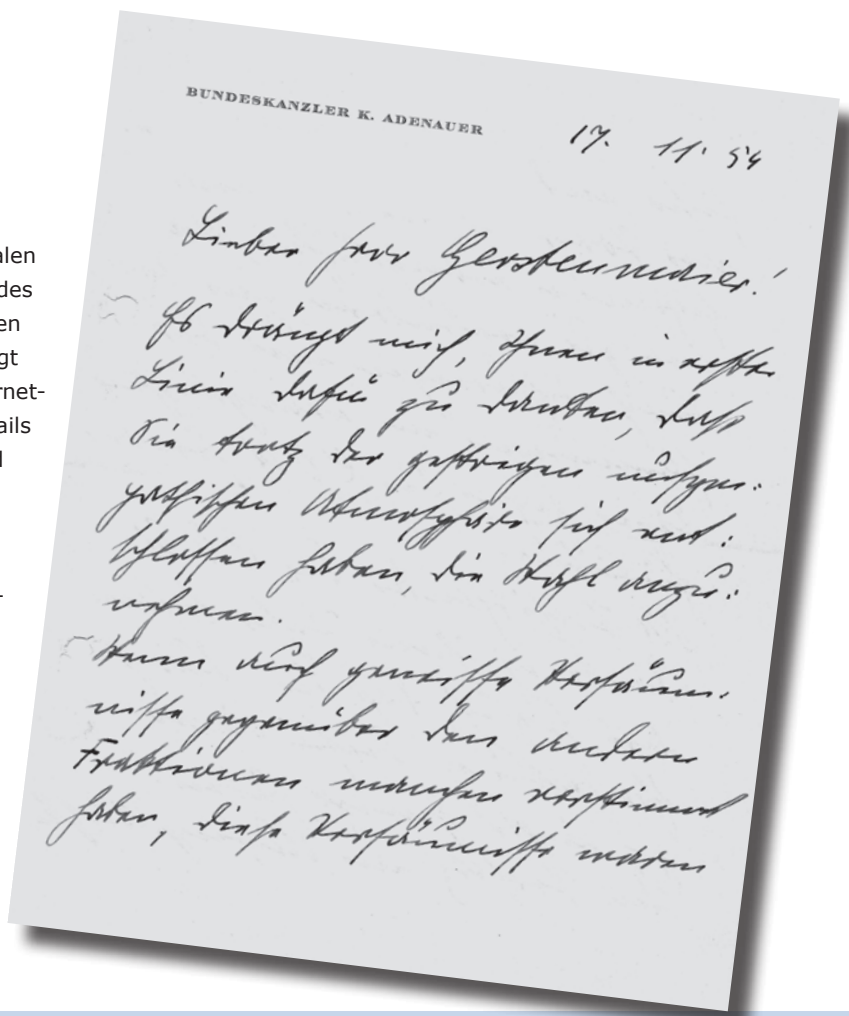 alen
des
en
gt
rnet-
ails
d
-
BUNDESKANZLER K. ADENAUER
17. 11. 54
Lieber Herr Gerstenmaier!
Es drängt mich, Ihnen in erster
Linie dafür zu danken, daß
Sie trotz der gestrigen unsym-
pathischen Atmosphäre sich ent-
schlossen haben, die Wahl anzu-
nehmen.
Wenn auch gewisse Versäum-
nisse gegenüber den andern
Fraktionen manchen verstimmt
haben, diese Versäumnisse waren